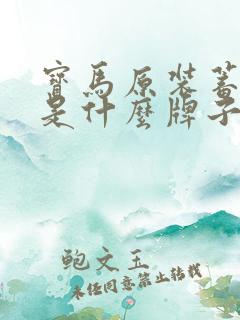 寶馬原裝蓄
是什麼牌子
鲍文玉
未经同意禁止转载